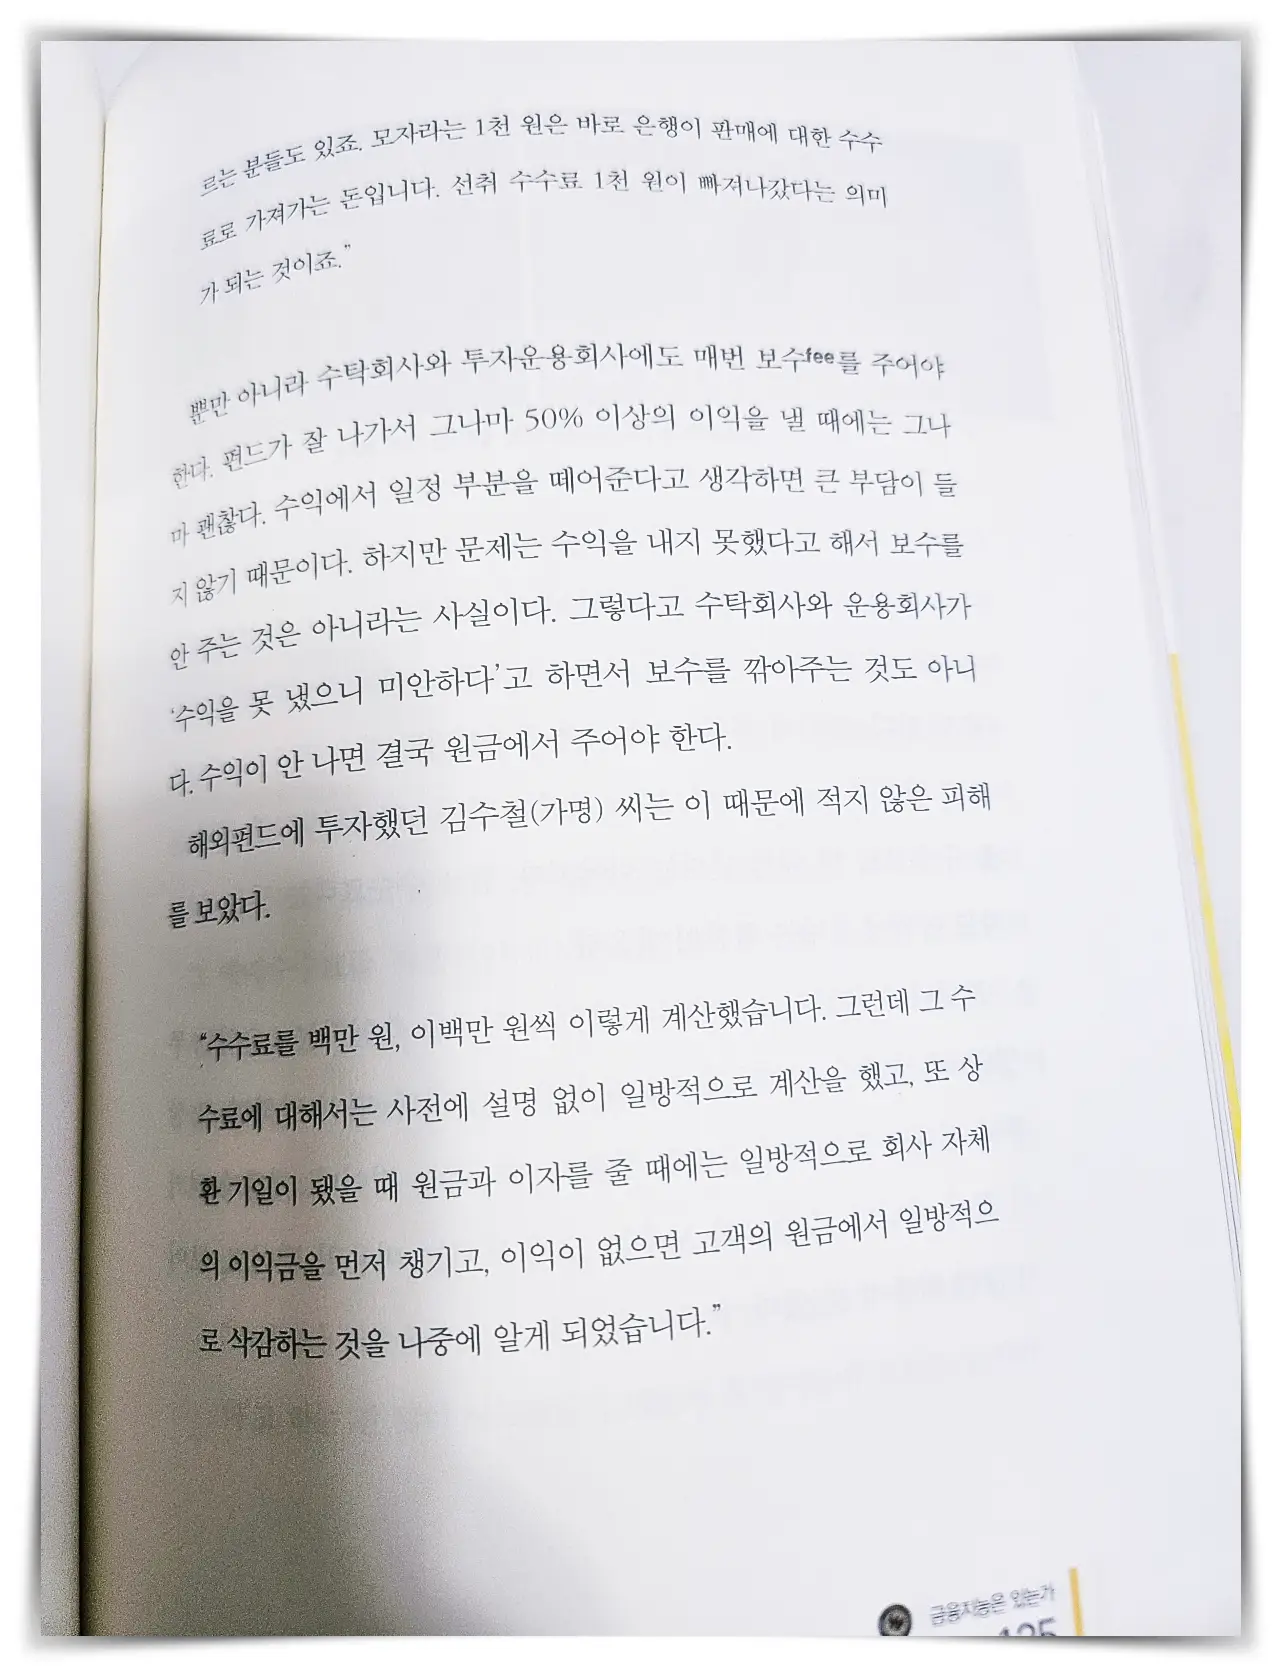 르는 분들도 있죠. 모자라는 1천 원은 바로 은행이 판매에 대한 수수
료로 가져가는 돈입니다. 선취 수수료 1천 원이 빠져나갔다는 의미
가 되는 것이죠.”
뿐만 아니라 수탁회사와 투자운용회사에도 매번 보수fee를 주어야
한다. 펀드가 잘 나가서 그나마 50% 이상의 이익을 낼 때에는 그나
마 괜찮다. 수익에서 일정 부분을 떼어준다고 생각하면 큰 부담이 들
지 않기 때문이다. 하지만 문제는 수익을 내지 못했다고 해서 보수를
안 주는 것은 아니라는 사실이다. 그렇다고 수탁회사와 운용회사가
‘수익을 못 냈으니 미안하다’고 하면서 보수를 깎아주는 것도 아니
다. 수익이 안 나면 결국 원금에서 주어야 한다.
해외펀드에 투자했던 김수철(가명) 씨는 이 때문에 적지 않은 피해
를 보았다.
“수수료를 백만 원, 이백만 원씩 이렇게 계산했습니다. 그런데 그 수
수료에 대해서는 사전에 설명 없이 일방적으로 계산을 했고, 또 상
환 기일이 됐을 때 원금과 이자를 줄 때에는 일방적으로 회사 자체
의 이익금을 먼저 챙기고, 이익이 없으면 고객의 원금에서 일방적으
로 삭감하는 것을 나중에 알게 되었습니다.”
금융지능은 있는가